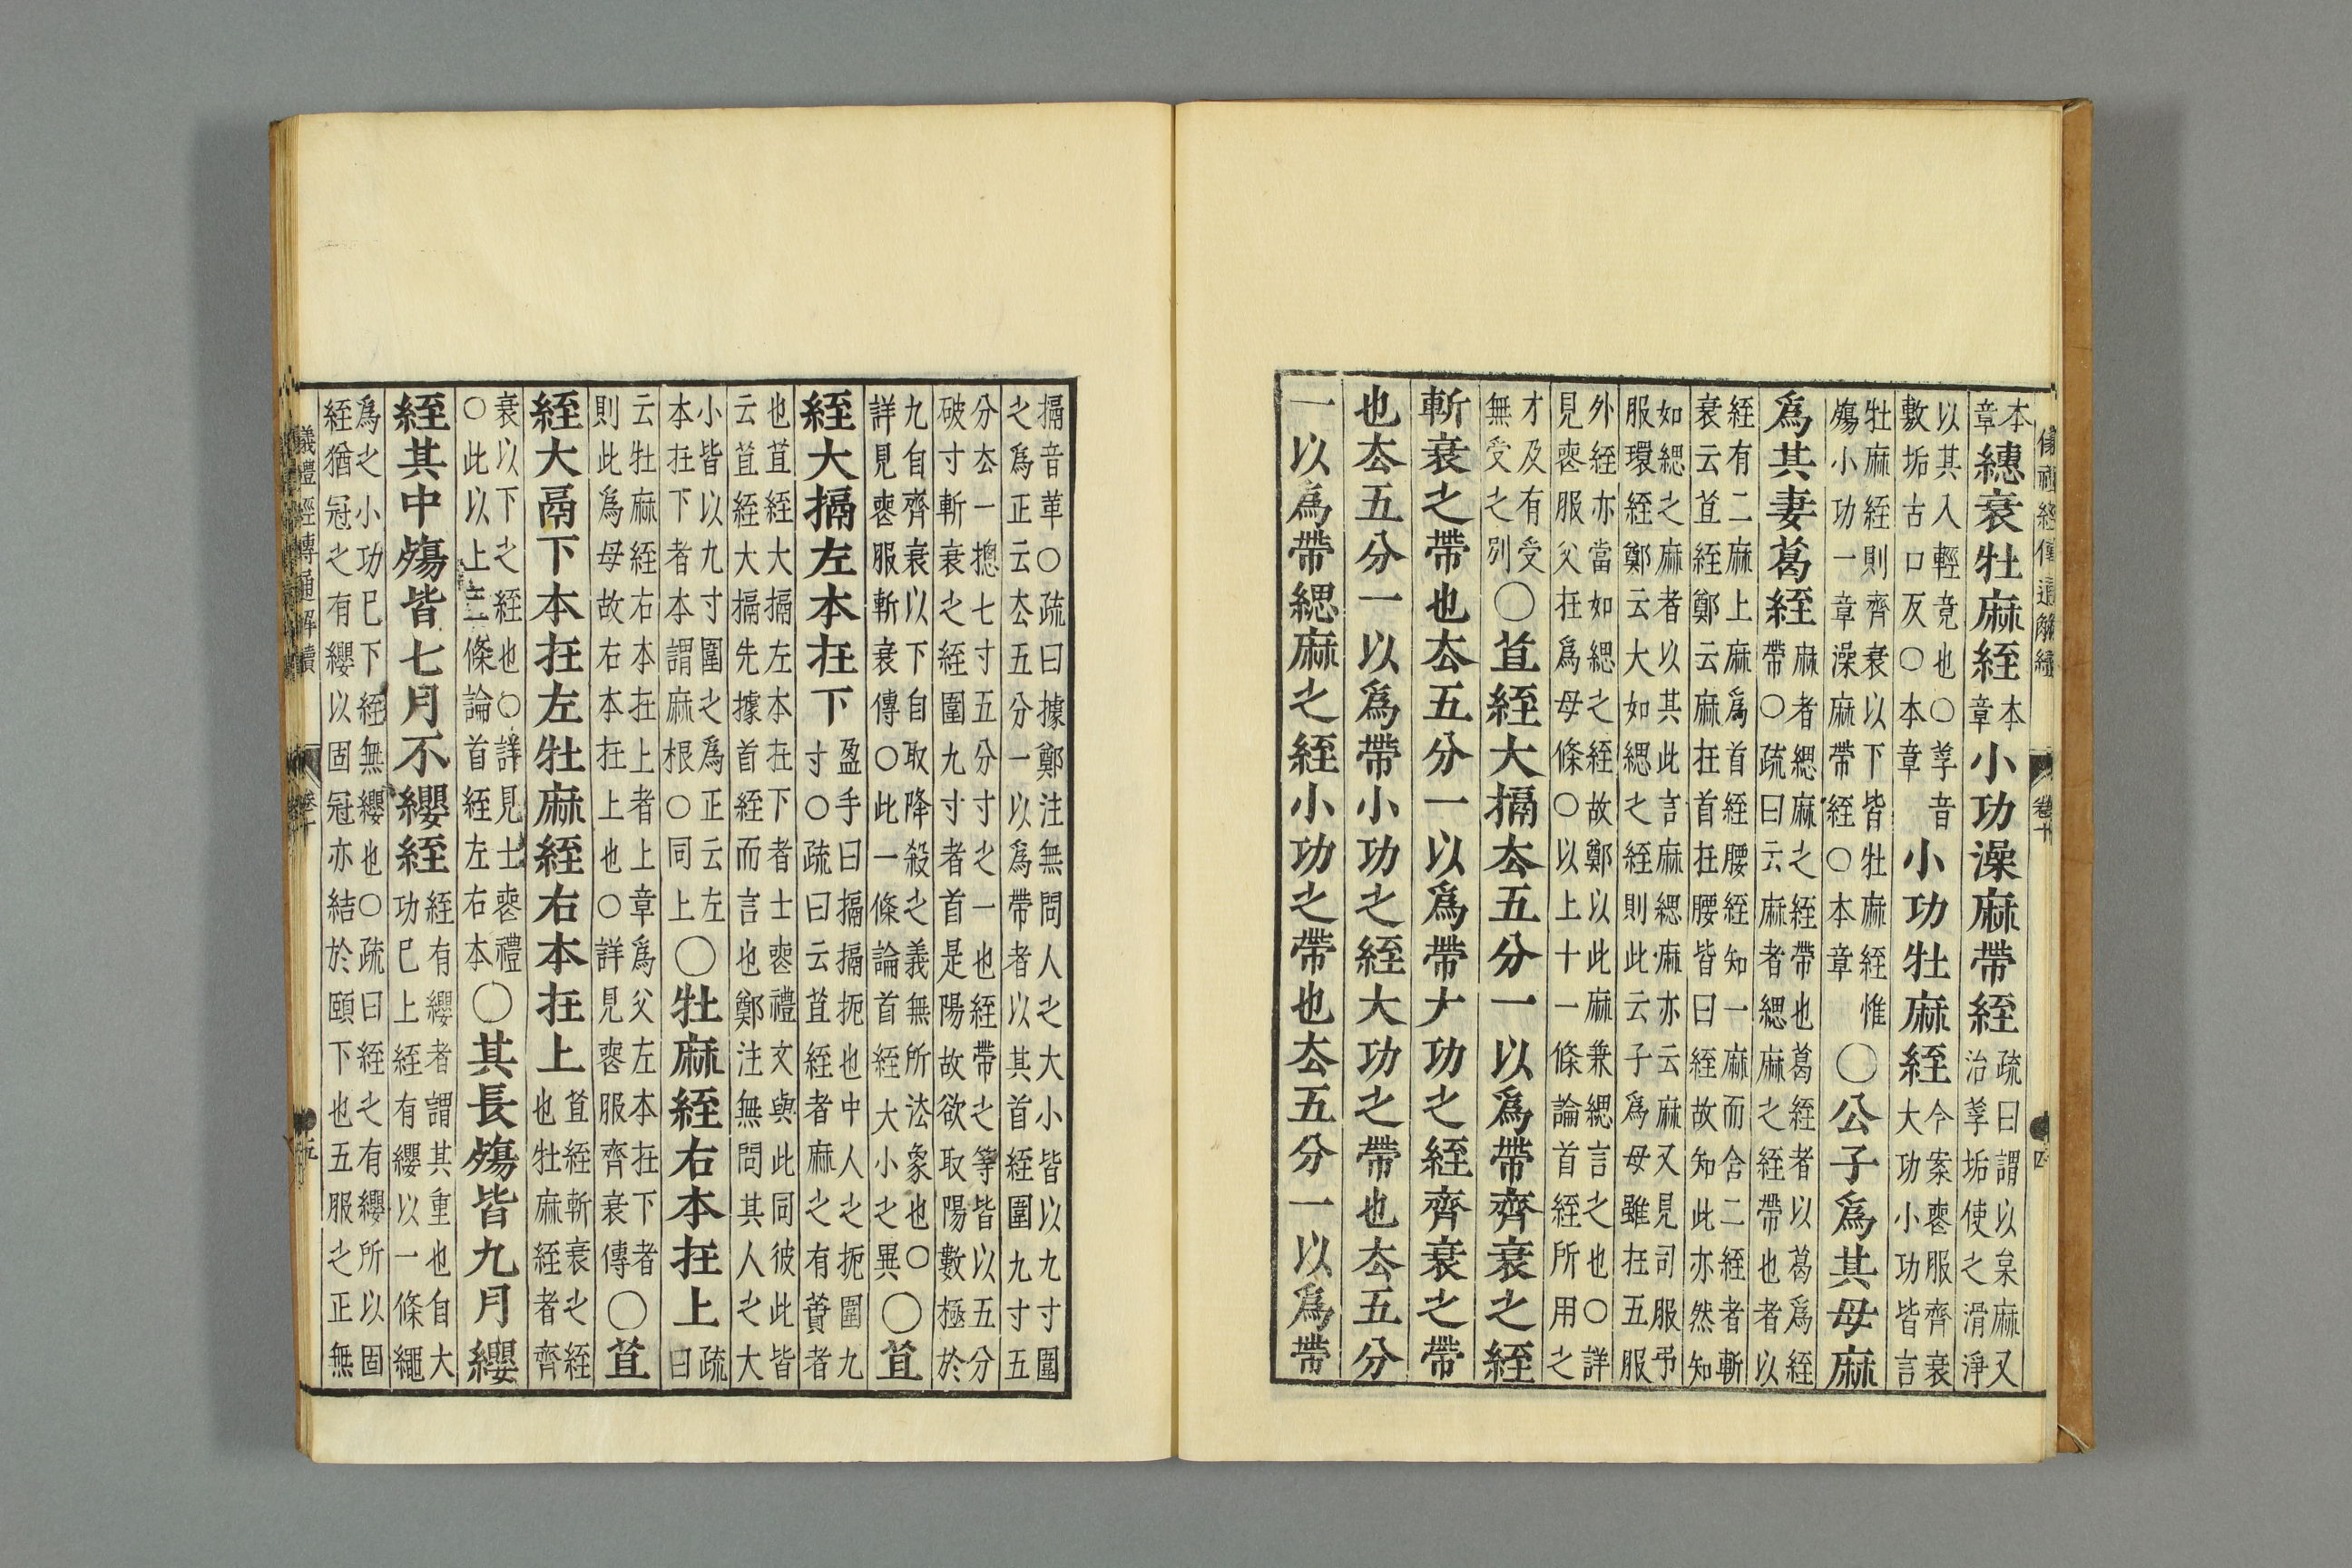 儀禮經傳通解續 卷十 四
本章繐衰牡麻絰本章小功澡麻帶絰疏曰謂以枲麻又
治莩垢使之滑淨
以其入輕竟也○莩音
敷垢古口反○本章小功牡麻絰今案喪服齊衰
大功小功皆言
牡麻絰則齊衰以下皆牡麻絰惟
殤小功一章澡麻帶絰○本章○公子爲其母麻
爲其妻葛絰麻者緦麻之絰帶也葛絰者以葛爲絰
帶○疏曰云麻者緦麻之絰帶也者以
絰有二麻上麻爲首絰腰絰知一麻而含二絰者斬
衰云苴絰鄭云麻在首在腰皆曰絰故知此亦然知
如緦之麻者以其此言麻緦麻亦云麻又見司服弔
服環絰鄭云大如緦之絰則此云子爲母雖在五服
外絰亦當如緦之絰故鄭以此麻兼緦言之也○詳
見喪服父在爲母條○以上十一條論首絰所用之
才及有受
無受之別○苴絰大搹去五分一以爲帶齊衰之絰
斬衰之帶也去五分一以爲帶大功之絰齊衰之帶
也去五分一以爲帶小功之絰大功之帶也去五分
一以爲帶緦麻之絰小功之帶也去五分一以爲帶
搹音革○疏曰據鄭注無問人之大小皆以九寸圍
之爲正云去五分一以爲帶者以其首絰圍九寸五
分去一揔七寸五分寸之一也絰帶之等皆以五分
破寸斬衰之絰圍九寸者首是陽故欲取陽數極於
九自齊衰以下自取降殺之義無所法象也○
詳見喪服斬衰傳○此一條論首絰大小之異○苴
絰大搹左本在下盈手曰搹搹扼也中人之扼圍九
寸○疏曰云苴絰者麻之有蕡者
也苴絰大搹左本在下者士喪禮文與此同彼此皆
云苴絰大搹先據首絰而言也鄭注無問其人之大
小皆以九寸圍之爲正云左
本在下者本謂麻根○同上○牡麻絰右本在上疏
曰
云牡麻絰右本在上者上章爲父左本在下者
則此爲母故右本在上也○詳見喪服齊衰傳○苴
絰大鬲下本在左牡麻絰右本在上苴絰斬衰之絰
也牡麻絰者齊
衰以下之絰也○詳見士喪禮
○此以上三條論首絰左右本○其長殤皆九月纓
絰其中殤皆七月不纓絰絰有纓者謂其重也自大
功已上絰有纓以一條繩
爲之小功已下絰無纓也○疏曰絰之有纓所以固
絰猶冠之有纓以固冠亦結於頤下也五服之正無
儀禮經傳通解續 卷十 五